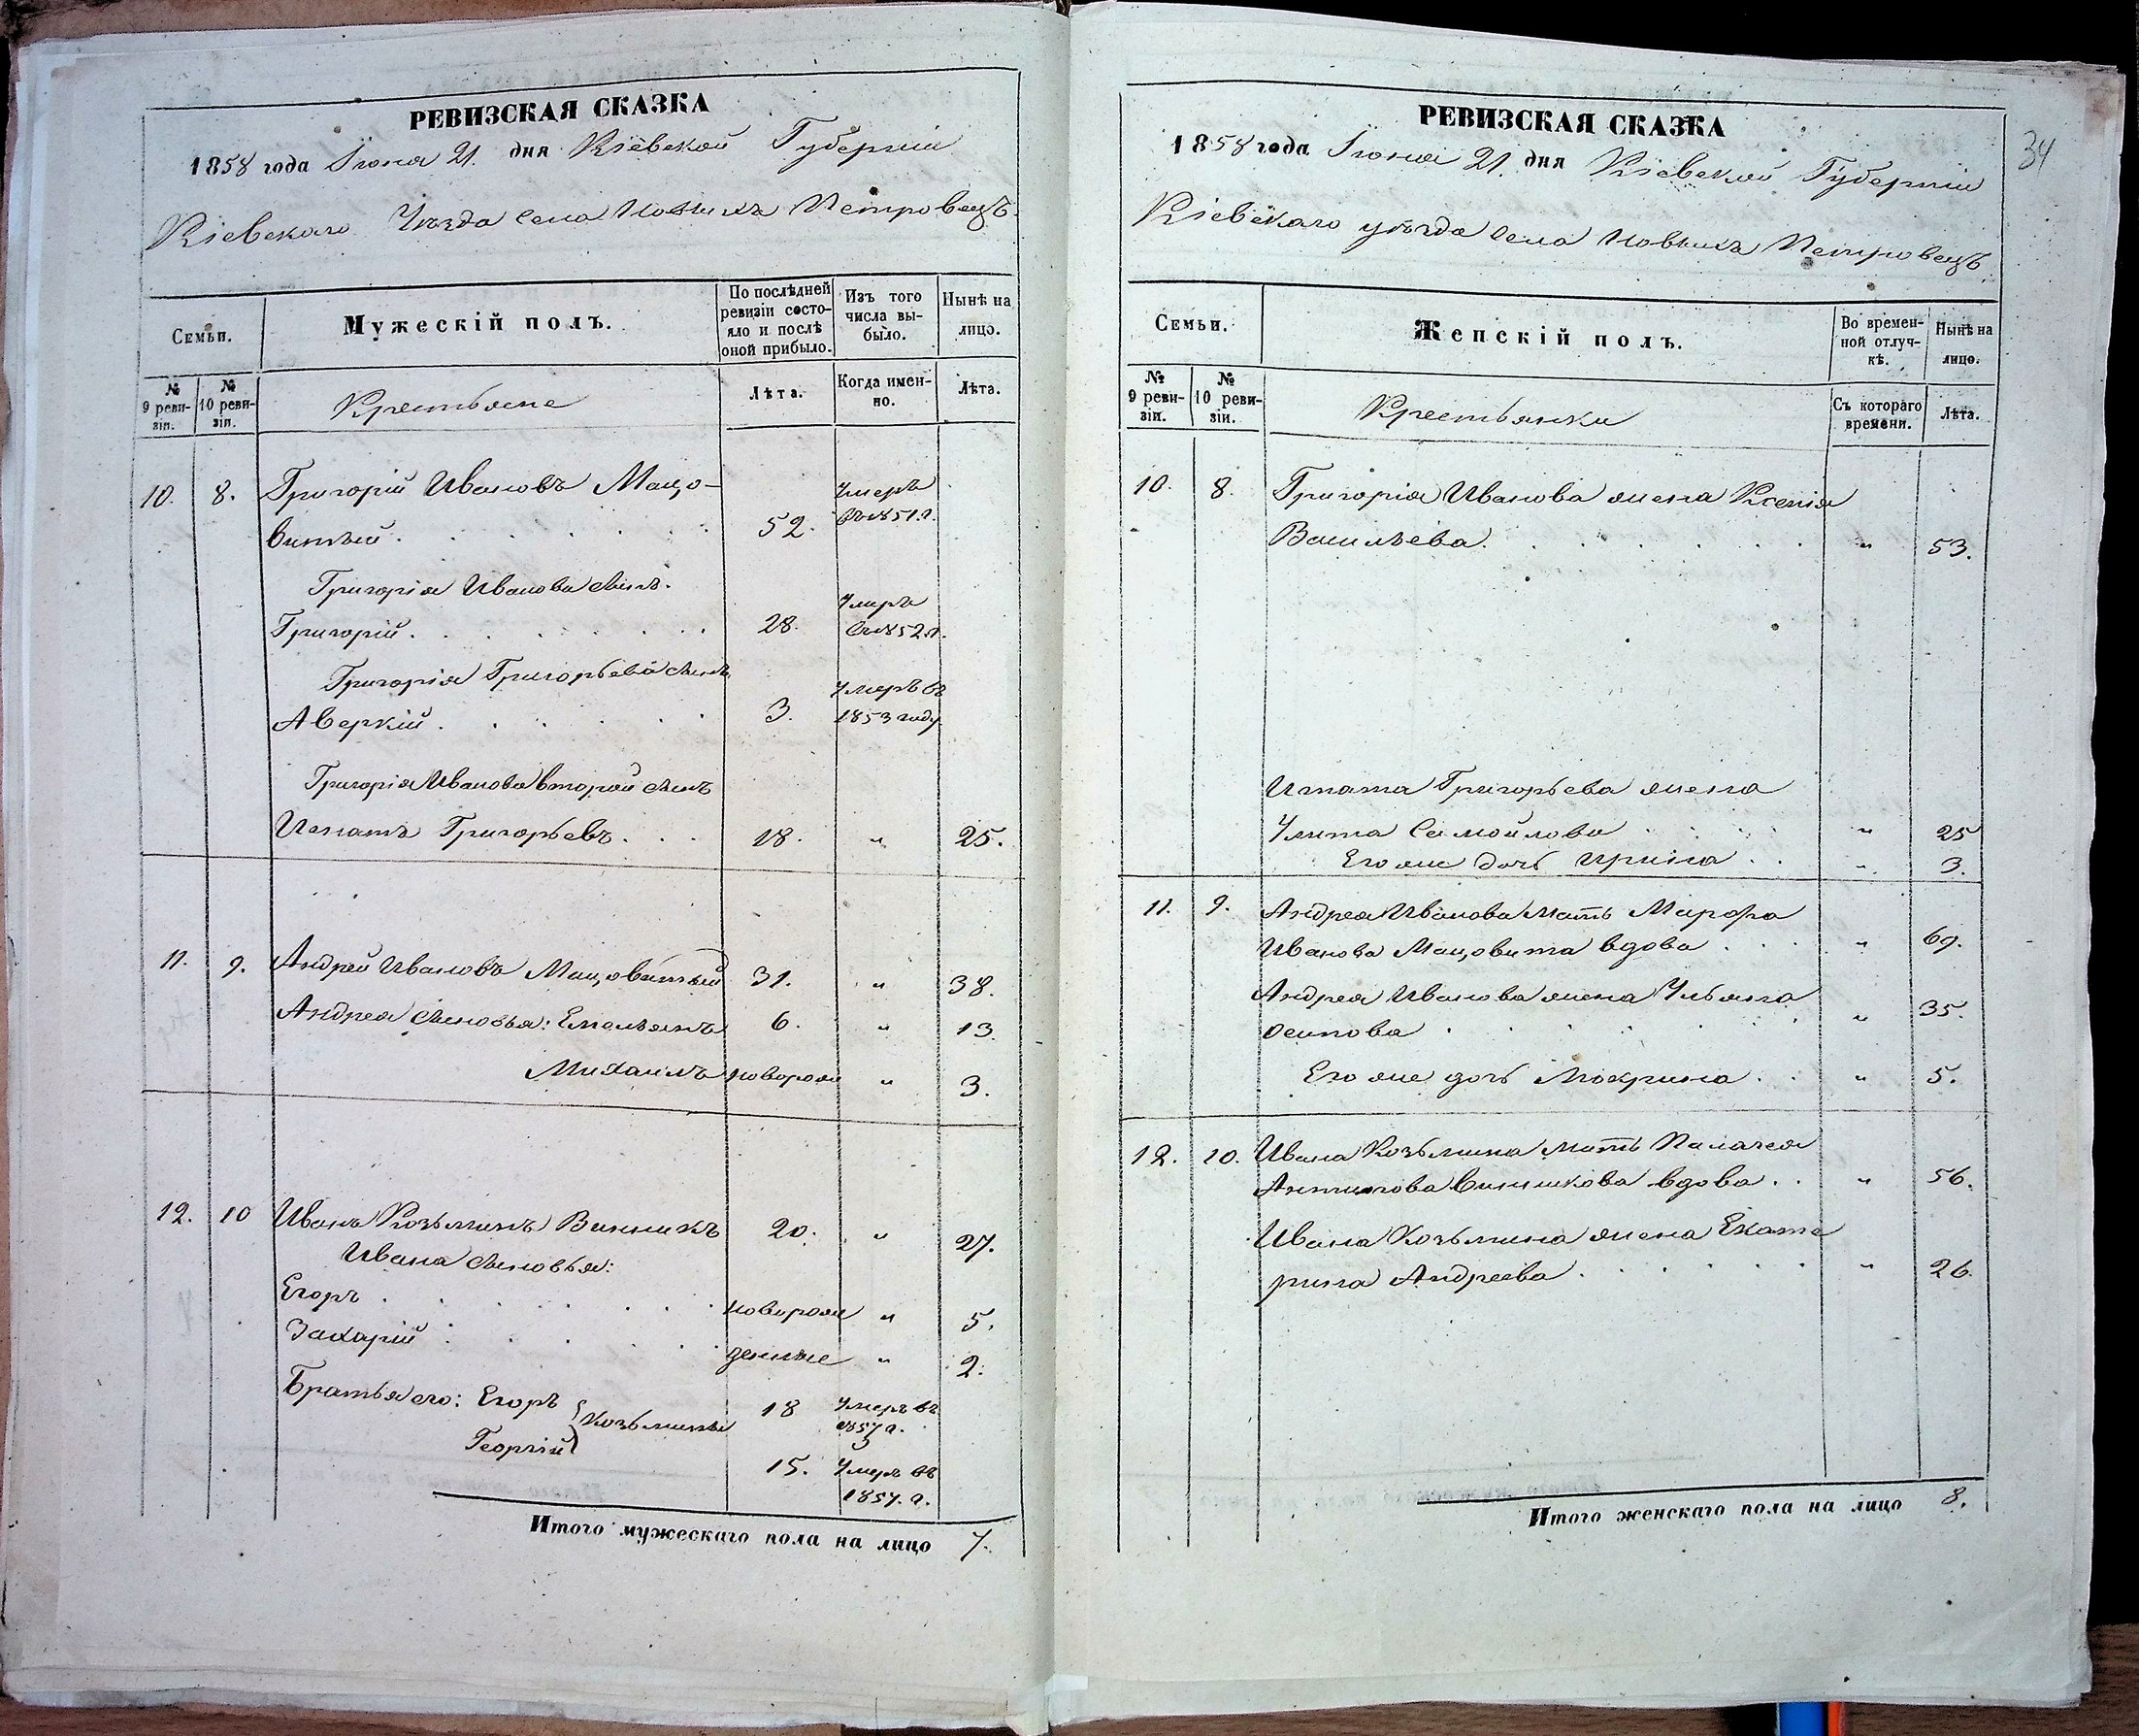 РЕВИЗСКАЯ СКАЗКА
1858 года Іюня 21. дня Кіевской Губерніи
Кіевскаго Уѣзда Села Новыхъ Петровецъ
Семьи.
Мужескій полъ.
По послѣдней ревизіи состояло и послѣ оной прибыло.
Изъ того числа выбыло.
Нынѣ на лицо.
№ 9 ревизіи.
№ 10 ревизіи.
Крестьяне
Лѣта.
Когда именно.
Лѣта.
10. 8. Григорій Ивановъ Мацо- Умеръ
витый. 52. въ 1851.г.
Григорія Иванова сынъ. Умеръ
Григорій. 28. въ 1852.г.
Григорія Григорьева сынъ Умеръ въ
Аверкій. 3. 1853 году
Григорія Иванова второй сынъ
Игнатъ Григорьевъ. 18. " 25.
11. 9. Андрей Ивановъ Мацовитый 31. " 38.
Андрея сыновья: Емельянъ 6. " 13.
Михаилъ новорож " 3.
12. 10 Иванъ Козьминъ Винникъ 20. " 27.
Ивана сыновья:
Егоръ новорож " 5.
Захарій денные " 2.
Братья его: Егоръ } Козьмины 18 Умеръ въ 1857 г.
Георгій } 15. Умеръ въ
1857. г.
Итого мужескаго пола на лицо 7.
34
РЕВИЗСКАЯ СКАЗКА
1858 года Іюня 21. дня Кіевской Губерніи
Кіевскаго уѣзда Села Новыхъ Петровецъ
Семьи.
Женскій полъ.
Во временной отлучкѣ.
Нынѣ на лицо.
№ 9 ревизіи.
№ 10 ревизіи.
Крестьянки
Съ котораго времени.
Лѣта.
10. 8. Григорія Иванова жена Ксенія
Васильева. " 53.
Игната Григорьева жена
Улита Самойлова " 25
Его же дочь Ирина . . " 3.
11. 9. Андрея Иванова мать Марфа
Иванова Мацовита вдова . . . " 69.
Андрея Иванова жена Ульяна
Осипова " 35.
Его же дочь Мокрина . . " 5.
12. 10. Ивана Козьмина мать Палагея
Антипова Винникова вдова . . " 56.
Ивана Козьмина жена Екате
рина Андреева " 26.
Итого женскаго пола на лицо 8.